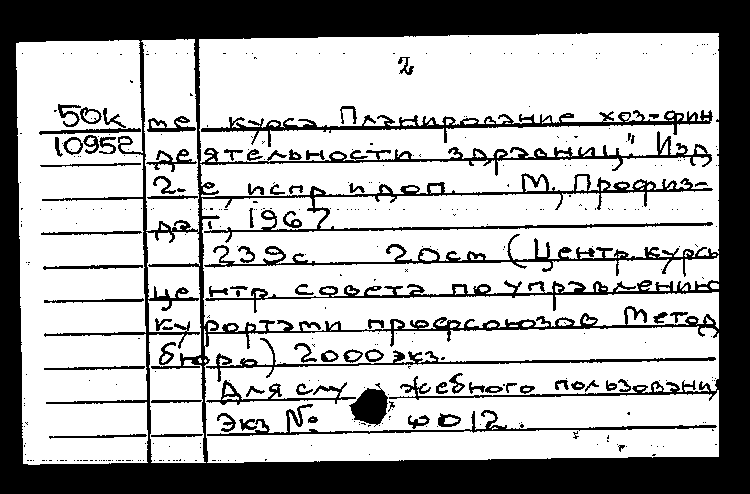 2
50к те курса „Планирование хоз-фин.
10952 деятельности здравниц". Изд
2-е, испр. и доп. М., Профиз-
дат, 1967.
239с. 20см (Центр. курсы
центр. совета по управлению
курортами профсоюзов Метод
бюро) 2000 экз.
Для служебного пользования
Экз № 0012.